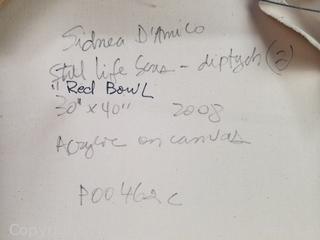 Sidnea D'Amico
Still Life Series - diptych (2)
"Red Bowl
30" x 40" 2008
Acrylic on canvas
P00462c
Copyri